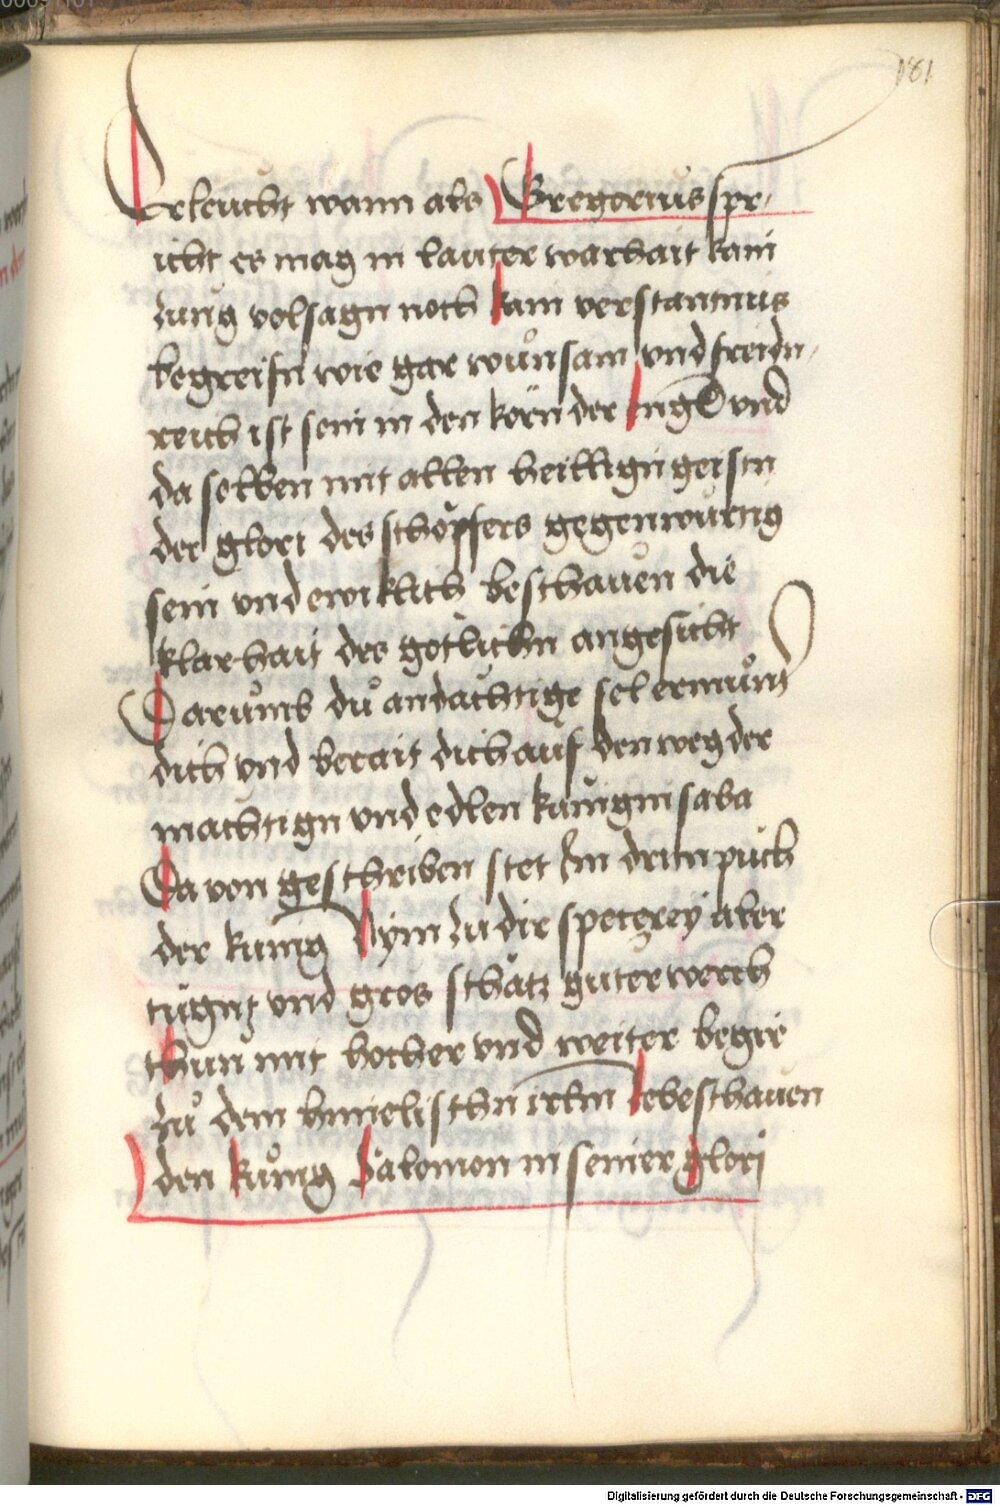 181
Erleucht wann als Gregorius spr¬
icht es mag in lauter warhait kain
zung volsagn noch kain verstantnus
begreifn wie gar wunsam und freidn¬
reich ist sein in den körn der engel und
da selben mit allen heilligen geistn
der glori des schöpfers gegenwurtig
sein und ewiklich beschauen die
klarhait des gotlichn angesicht
Darumb du andachtige sel ermunt
dich vnd berait dich auf den weg der
machtign vnd edlen kunign saba
Da von geschriben stet Im dritn puch
der kunig Nym zu dir speczerey aler
tugnt vnd gros schätz guter werch
thun mit hocher vnd weiter begir
zu dem himelischn irlm zebeschauen
den kunig Salomon in seiner glori
Digitalisierung gefördert durch die Deutsche Forschungsgemeinschaft - DFG